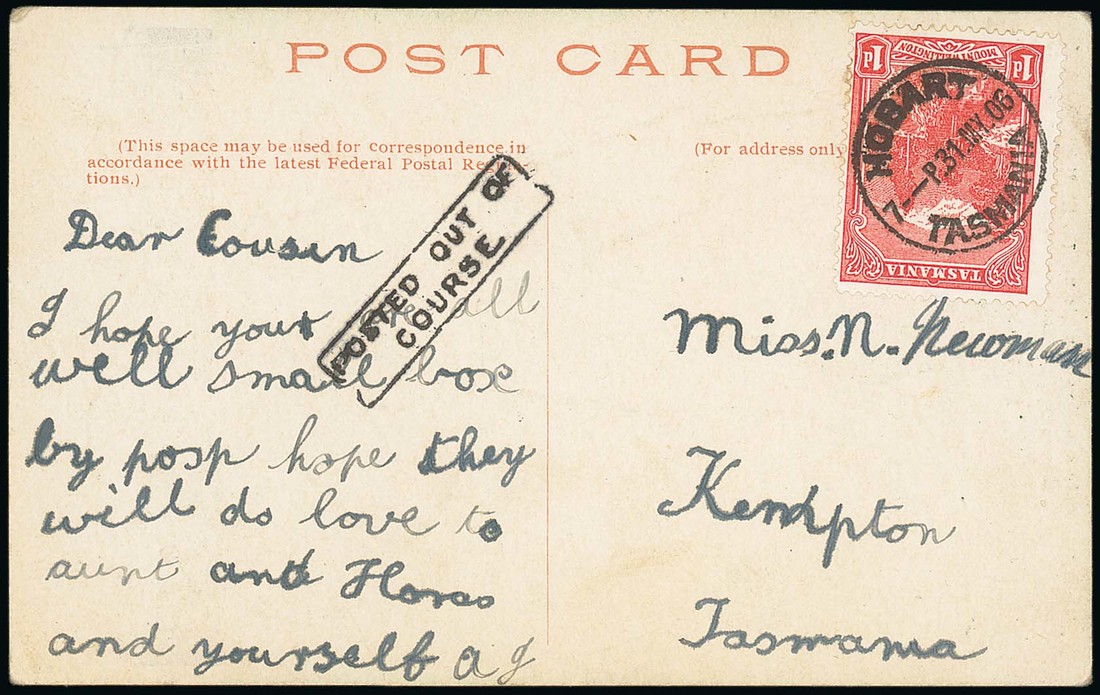 POST CARD
(This space may be used for correspondence in
accordance with the latest Federal Postal
tions.)
(For address only
1d 1d
MOUNT WELLINGTON
TASMANIA
HOBART
7--P.31.MY.06
TASMANIA
POSTED OUT OF
COURSE
Dear Cousin
I hope your all
well small box
by posp hope they
will do love to
aunt and Horas
and yourself A J
Miss. N. Newman
Kempton
Tasmania